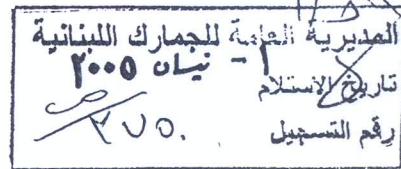 المديرية العامة للجمارك اللبنانية
٢ - نيسان ٢٠٠٥
تاريخ الاستلام
رقم التسجيل ٢٧٥٠